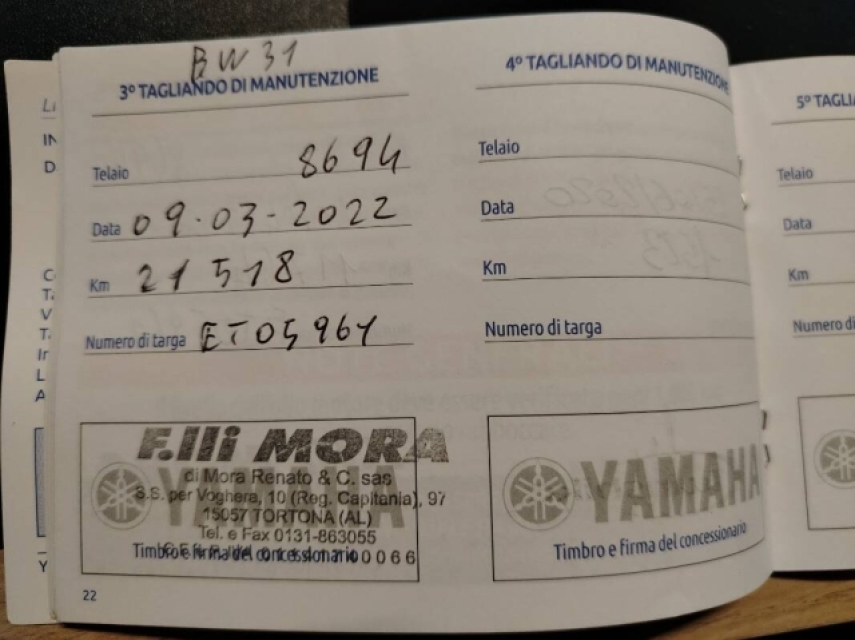 BW31
3º TAGLIANDO DI MANUTENZIONE
Telaio 8694
Data 09-03-2022
Km 21518
Numero di targa ET05961
F.lli MORA
YAMAHA
di Mora Renato & C. sas
S.S. per Voghera, 10 (Reg. Capitania), 97
15057 TORTONA (AL)
Tel. e Fax 0131-863055
Timbro e firma del concessionario
22
4º TAGLIANDO DI MANUTENZIONE
Telaio
Data
Km
Numero di targa
YAMAHA
Timbro e firma del concessionario
5º TAGLI
Telaio
Data
Km
Numero di